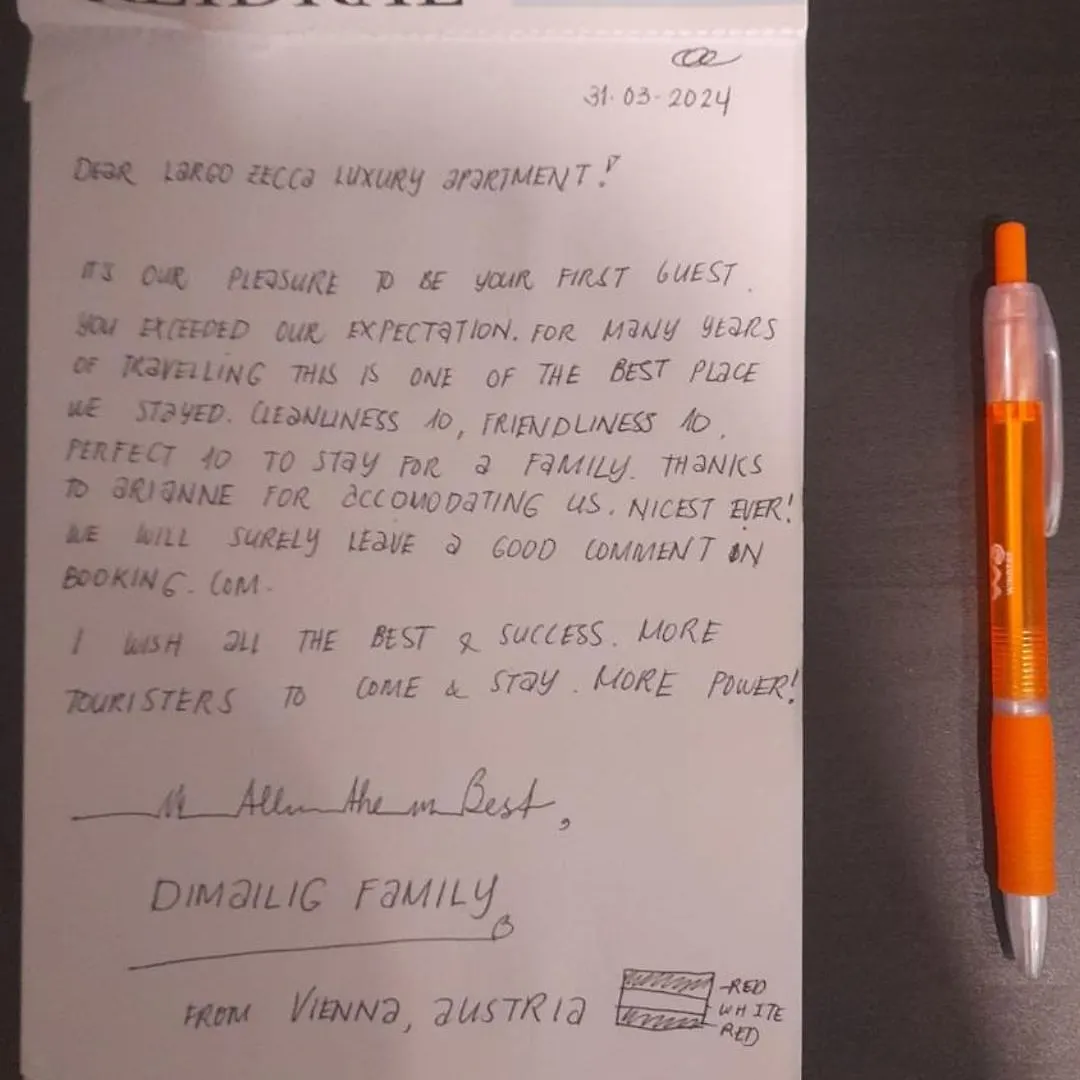 31.03.2024
DEAR LARGO ZECCA LUXURY APARTMENT!
IT'S OUR PLEASURE TO BE YOUR FIRST GUEST.
YOU EXCEEDED OUR EXPECTATION. FOR MANY YEARS
OF TRAVELLING THIS IS ONE OF THE BEST PLACE
WE STAYED. CLEANLINESS 10, FRIENDLINESS 10,
PERFECT 10 TO STAY FOR A FAMILY. THANKS
TO ARIANNE FOR ACCOMODATING US. NICEST EVER!
WE WILL SURELY LEAVE A GOOD COMMENT ON
BOOKING.COM.
I WISH ALL THE BEST & SUCCESS. MORE
TOURISTERS TO COME & STAY. MORE POWER!
All the Best,
DIMAILIG FAMILY
FROM VIENNA, AUSTRIA
-RED
WHITE
RED